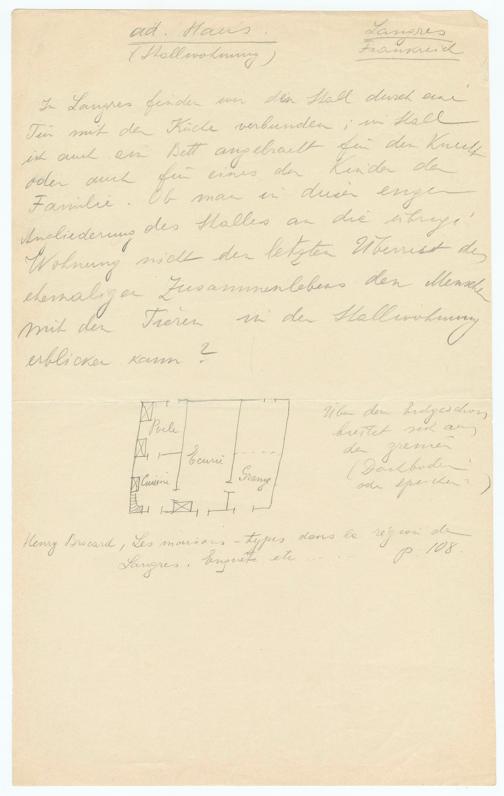 ad. Haus.
(Stallwohnung)
Langres
Frankreich
In Langres finden wir den Stall durch eine
Tür mit der Küche verbunden; im Stall
ist auch ein Bett angebracht für den Knecht
oder auch für eines der Kinder der
Familie. Ob man in dieser engen
Angliederung des Stalles an die übrige
Wohnung nicht den letzten Überrest des
ehemaligen Zusammenlebens der Menschen
mit den Tieren in der Stallwohnung
erblicken kann?
Poêle
Ecurie
Cuisine
Grange
Über dem Erdgeschoss
breitet sich aus
der grenier
(Dachboden
oder Speicher)
Henry Brocard, Les maisons-types dans la région de
Langres. Enquête etc ..... p. 108.